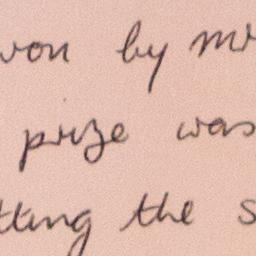 won by Mr
prize was
tting the s